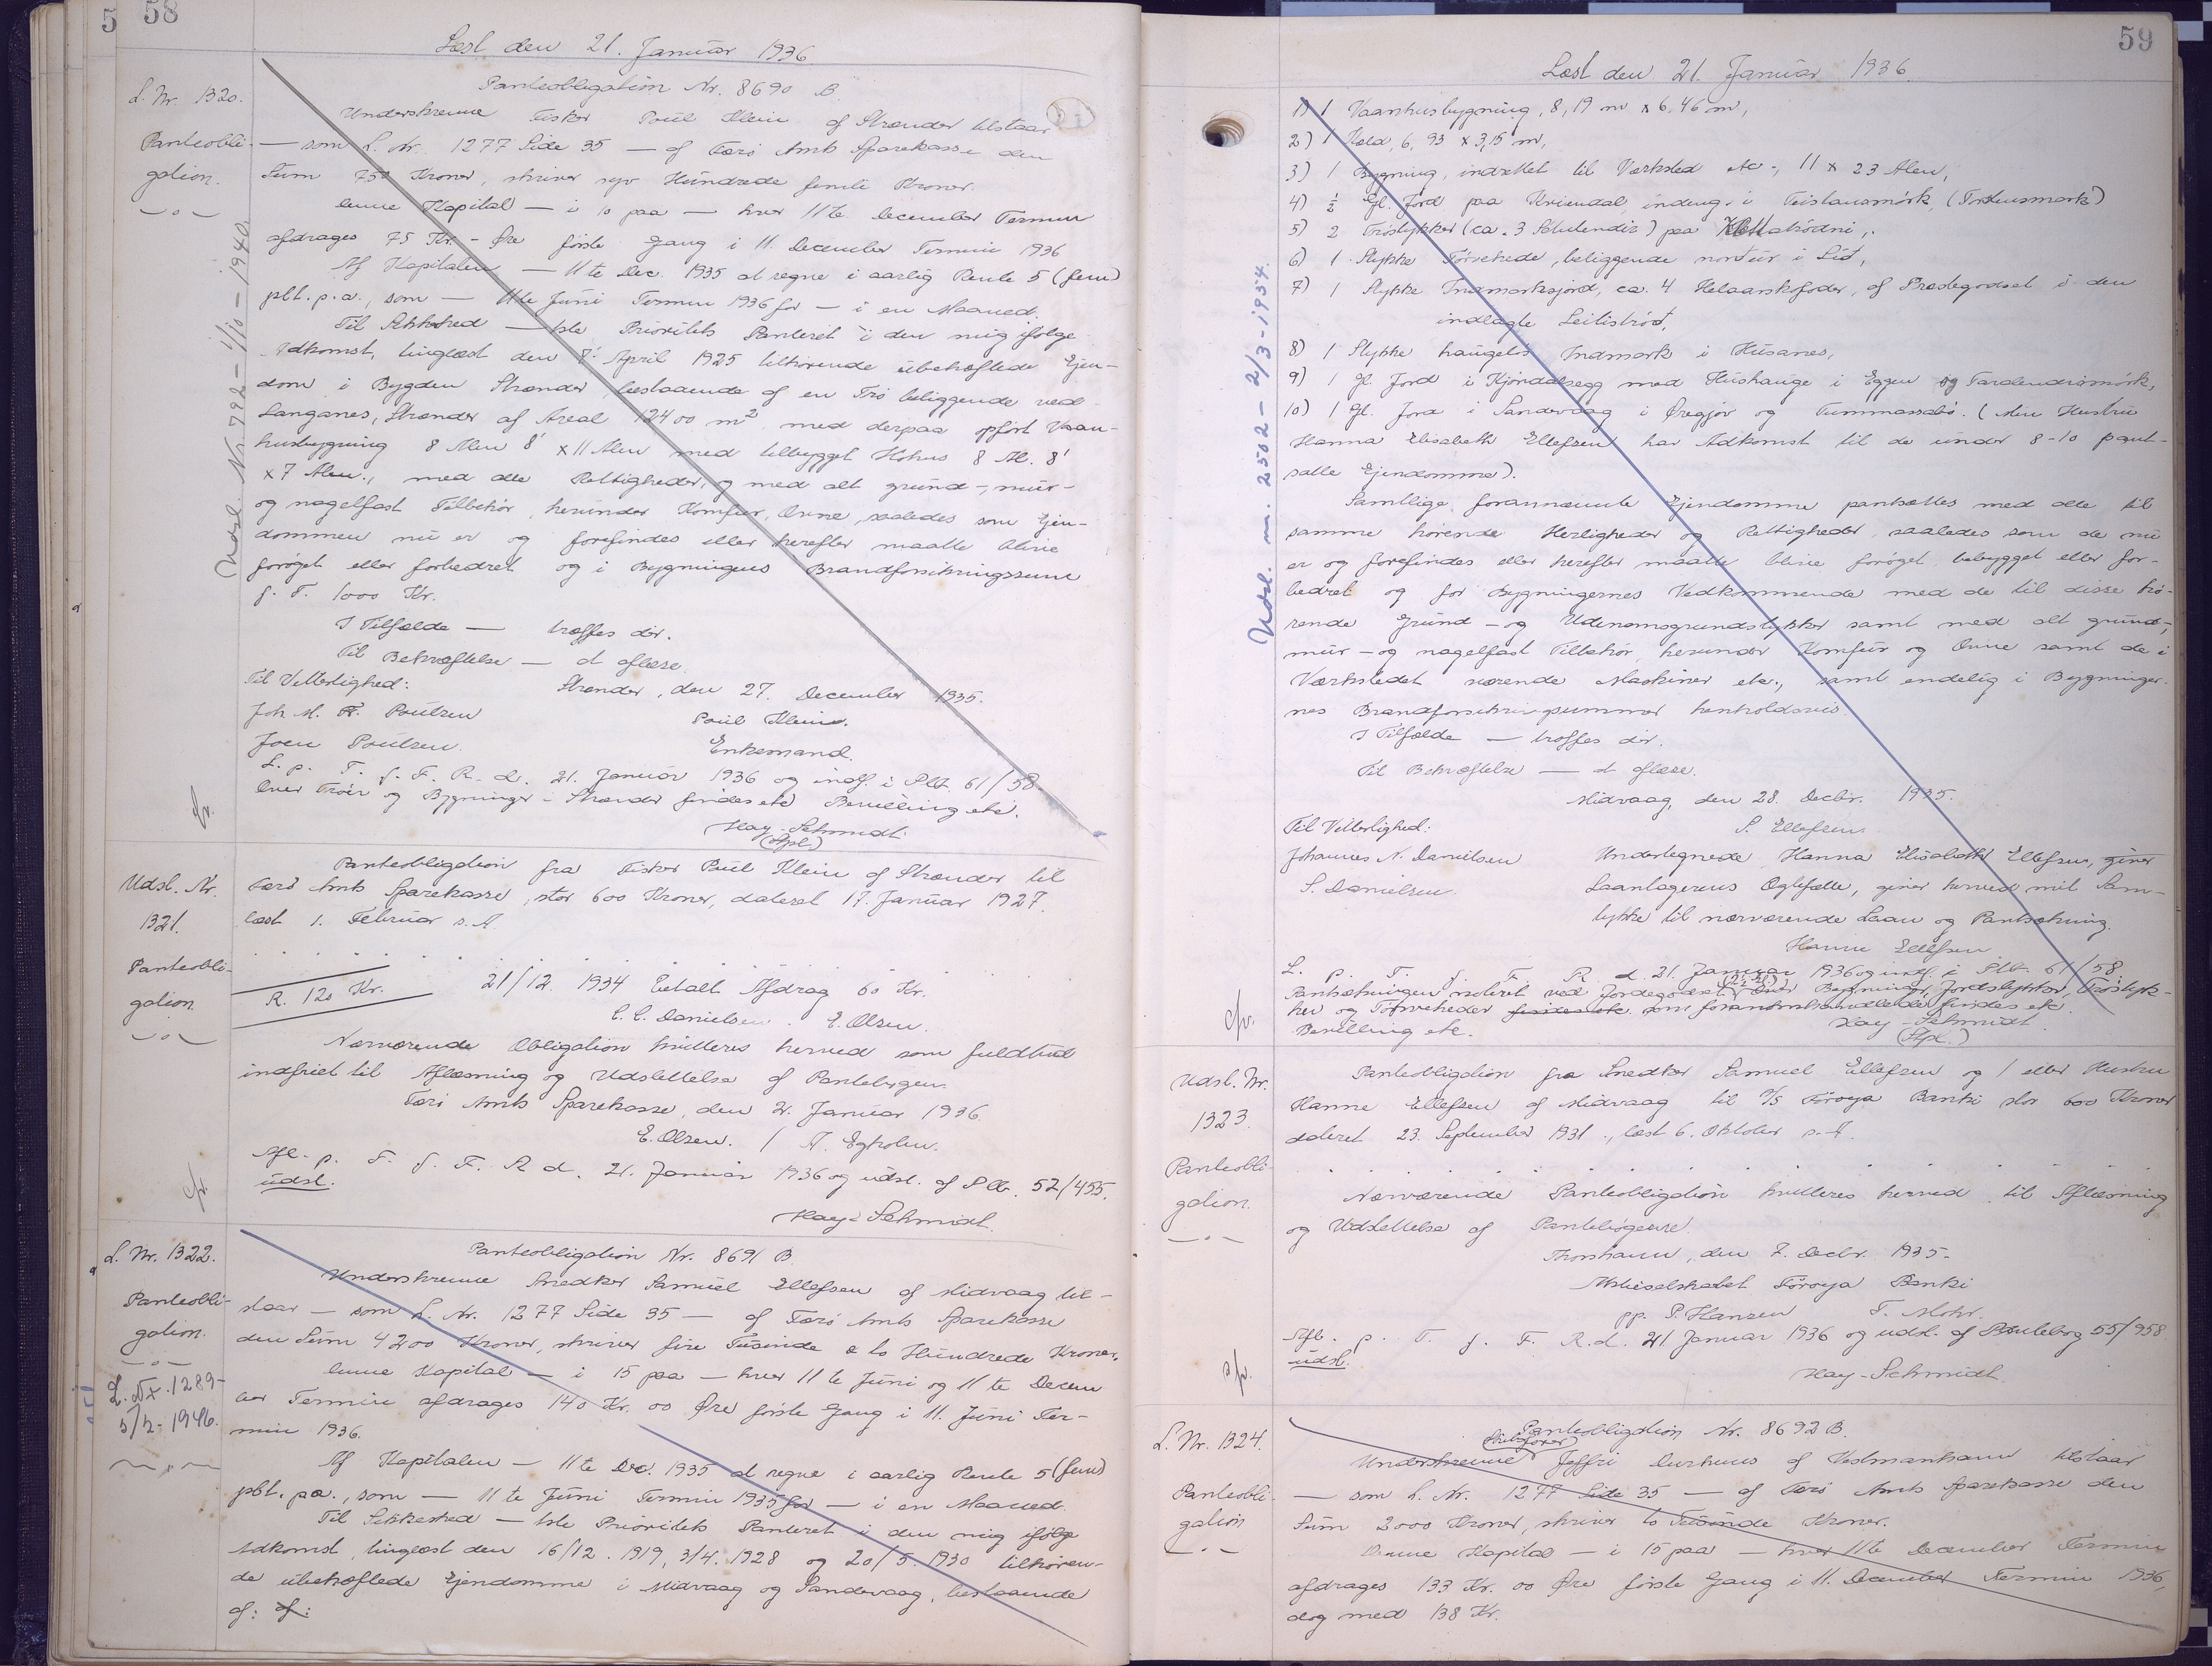 5 58
Læst den 21. Januar 1936.
L. Nr. 1320.
Panteobli-
gation.
Udsl. Nr. 792 - 1/10 - 1940.
Panteobligation Nr. 8690 B.
Underskrevne Fisker Poul Klein af Strænder tilstaar
— som L. Nr. 1277 Side 35 — af Færø Amts Sparekasse den
Sum 750 Kroner, skriver syv Hundrede femti Kroner.
Denne Kapital — i 10 paa — hver 11te December Termin
afdrages 75 Kr. - Øre første Gang i 11. December Termin 1936
Af Kapitalen — 11te Dec. 1935 at regne i aarlig Rente 5 (fem)
pCt. p.a., som — 11te Juni Termin 1936 for — i en Maaned.
Til Sikkerhed — 1ste Prioritets Panteret i den mig ifølge
Adkomst, tinglæst den 7' April 1925 tilhørende ubehæftede Ejen-
dom i Bygden Strænder, bestaaende af en Trø beliggende ved
Langanes, Strænder af Areal 12400 m² med derpaa opført Vaan-
husbygning 8 Alen 8' x 11 Alen med tilbygget Hohus 8 Al. 8'
x 7 Alen., med alle Rettigheder, og med alt grund-, mur-
og nagelfast Tilbehør, herunder Komfur, Ovne, saaledes som Ejen-
dommen nu er og forefindes eller herefter maatte blive
forøget eller forbedret og i Bygningens Brandforsikringssum
p. T. 1000 Kr.
I Tilfælde — træffes dér.
Til Bekræftelse — at aflæse.
Til Vitterlighed:
Strænder, den 27. December 1935.
Joh. M. Fr. Poulsen
Poul Klein.
Joen Poulsen.
Enkemand.
L. p. T. f. F. R. d. 21. Januar 1936 og indf. i Ptb. 61/58.
Over Trøer og Bygninger i Strænder findes etc Bevilling etc.
Hay-Schmidt.
(Stpl.)
Udsl. Nr.
1321.
Panteobli-
gation
Panteobligation fra Fisker Poul Klein af Strænder til
Færø Amts Sparekasse, stor 600 Kroner, dateret 17. Januar 1927.
læst 1. Februar s. A.
R. 120 Kr.
21/12. 1934 Betalt Afdrag 60 Kr.
C. C. Danielsen. E. Olsen.
Nærværende Obligation kvitteres herved som fuldtud
indfriet til Aflæsning og Udslettelse af Pantebogen.
Færø Amts Sparekasse, den 21. Januar 1936.
E. Olsen. / A. Egholm.
Afl. p. T. f. F. R. d. 21. Januar 1936 og udsl. af Ptb. 52/455.
udsl.
Hay-Schmidt.
L. Nr. 1322.
Panteobli-
gation.
L. Nr. 1289 -
5/2 - 1946.
Panteobligation Nr. 8691 B
Underskrevne Snedker Samuel Ellefsen af Midvaag til-
staar — som L. Nr. 1277 Side 35 — af Færø Amts Sparekasse
den Sum 4200 Kroner, skriver fire Tusinde o to Hundrede Kroner.
Denne Kapital — i 15 paa — hver 11te Juni og 11te Decem
ber Termin afdrages 140 Kr. 00 Øre første Gang i 11. Juni Ter-
min 1936.
Af Kapitalen — 11te Dec. 1935 at regne i aarlig Rente 5 (fem)
pCt. p.a., som — 11te Juni Termin 1935 for — i en Maaned.
Til Sikkerhed — 1ste Prioritets Panteret i den mig ifølge
Adkomst, tinglæst den 16/12. 1919, 3/4. 1928 og 20/5. 1930 tilhøren-
de ubehæftede Ejendomme i Midvaag og Sandevaag, bestaaende
af: af:
59
Læst den 21. Januar 1936.
Udsl. nr. 2502 - 2/3 - 1954.
1) 1 Vaanhusbygning, 8,19 m x 6,46 m,
2) 1 Kæld, 6,93 x 3,15 m,
3) 1 Bygning, indrettet til Værksted etc., 11 x 23 Alen,
4) ½ Gl. Jord paa Kviendal, indeng. i Teistansmørk, (Tordensmørk)
5) 2 Trøstykker (ca. 3 Tdr. Land) paa trødni,
6) 1 Stykke Tørvehede, beliggende nordur i Lid,
7) 1 Stykke Indmarksjord, ca. 4 Helaarsfoder, af Præstegodset i den
indlagte Leitistrød,
8) 1 Stykke haugets Indmark i Husanes,
9) 1 Gl. Jord i Kjørdalsegg med Hushauge i Eggen og Tardendismørk,
10) 1 Gl. Jord i Sandevaag i Øregjov og Tummassabø. (Min Hustru
Hanna Elisabeth Ellefsen har Adkomst til de under 8-10 pant-
satte Ejendomme).
Samtlige forannævnte Ejendomme pantsættes med alle til
samme hørende Herligheder og Rettigheder, saaledes som de nu
er og forefindes eller herefter maatte blive forøget, bebygget eller for-
bedret og for Bygningernes Vedkommende med de til disse hø-
rende Grund- og Udenomsgrundstykker samt med alt grund-,
mur- og nagelfast Tilbehør, herunder Komfur og Ovne samt de i
Værkstedet værende Maskiner etc., samt endelig i Bygninger-
nes Brandforsikringssummer henholdsvis.
I Tilfælde — træffes dér.
Til Bekræftelse — at aflæse.
Midvaag, den 28. Decbr. 1935.
Til Vitterlighed:
S. Ellefsen
Johannes N. Danielsen
S. Danielsen.
Undertegnede Hanna Elisabeth Ellefsen, giver
Laantagerens Ægtefælle, giver herved mit Sam-
tykke til nærværende Laan og Pantsætning.
Hanne Ellefsen
L. p. T. f. F. R. d. 21. Januar 1936 og indf. i Ptb. 61/58.
Pantsætningen noteret ved Jordegodset. Over Bygninger, Jordstykker, Trøstyk-
ker og Tørveheder findes etc. som foranomhandlede findes etc.
Bevilling etc.
Hay-Schmidt.
(Stpl.)
Udsl. Nr.
1323.
Panteobli-
gation.
Panteobligation fra Snedker Samuel Ellefsen og / eller Hustru
Hanne Ellefsen af Midvaag til A/S Føroya Banki stor 600 Kroner
dateret 23. September 1931., læst 6. Oktober s. A.
Nærværende Panteobligation kvitteres herved til Aflæsning
og Udslettelse af Pantebøgerne.
Thorshavn, den 7. Decbr. 1935.
Aktieselskabet Føroya Banki
pp. P. Hansen T. Mohr.
Afl. p. T. f. F. R. d. 21 Januar 1936 og udsl. af Pantebog 55/958.
udsl.
Hay-Schmidt.
L. Nr. 1324.
Panteobli-
gation
Panteobligation Nr. 8692 B.
Underskrevne Joffri Durhuus af Vestmanhavn tilstaar
— som L. Nr. 1277 Side 35 — af Færø Amts Sparekasse den
Sum 2000 Kroner, skriver to Tusinde Kroner.
Denne Kapital — i 15 paa — hver 11te December Termin
afdrages 133 Kr. 00 Øre første Gang i 11. December Termin 1936,
dog med 138 Kr.